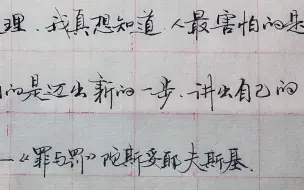 理、我真想知道，人最害怕的是
的是迈出新的一步，讲出自己的
—《罪与罚》陀斯妥耶夫斯基.